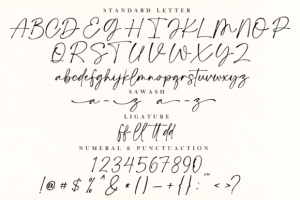 STANDARD LETTER
ABCDEFGHIJKLMNOP
QRSTUVWXYZ
abcdefghijklmnopqrstuvwxyz
SAWASH
a-z a--z
LIGATURE
ff ll tt dd
NUMERAL & PUNCTUACTION
1234567890
!@#$%^&*()—+{}:"'<>?